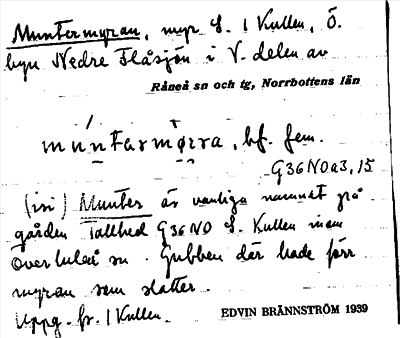 Muntermyran, myr S. I Kullen, Ö.
byn Nedre Flåsjön i V. delen av
Råneå sn och tg, Norrbottens län
muntarmørra, bf. fem.
G36NOa3,15
(isi) Munter är vanliga namnet på
gården Tallhed G36NO S. Kullen inom
Överluleå sn. Gubben där hade förr
myran som slåtter.
Uppg. fr. I Kullen.
EDVIN BRÄNNSTRÖM 1939